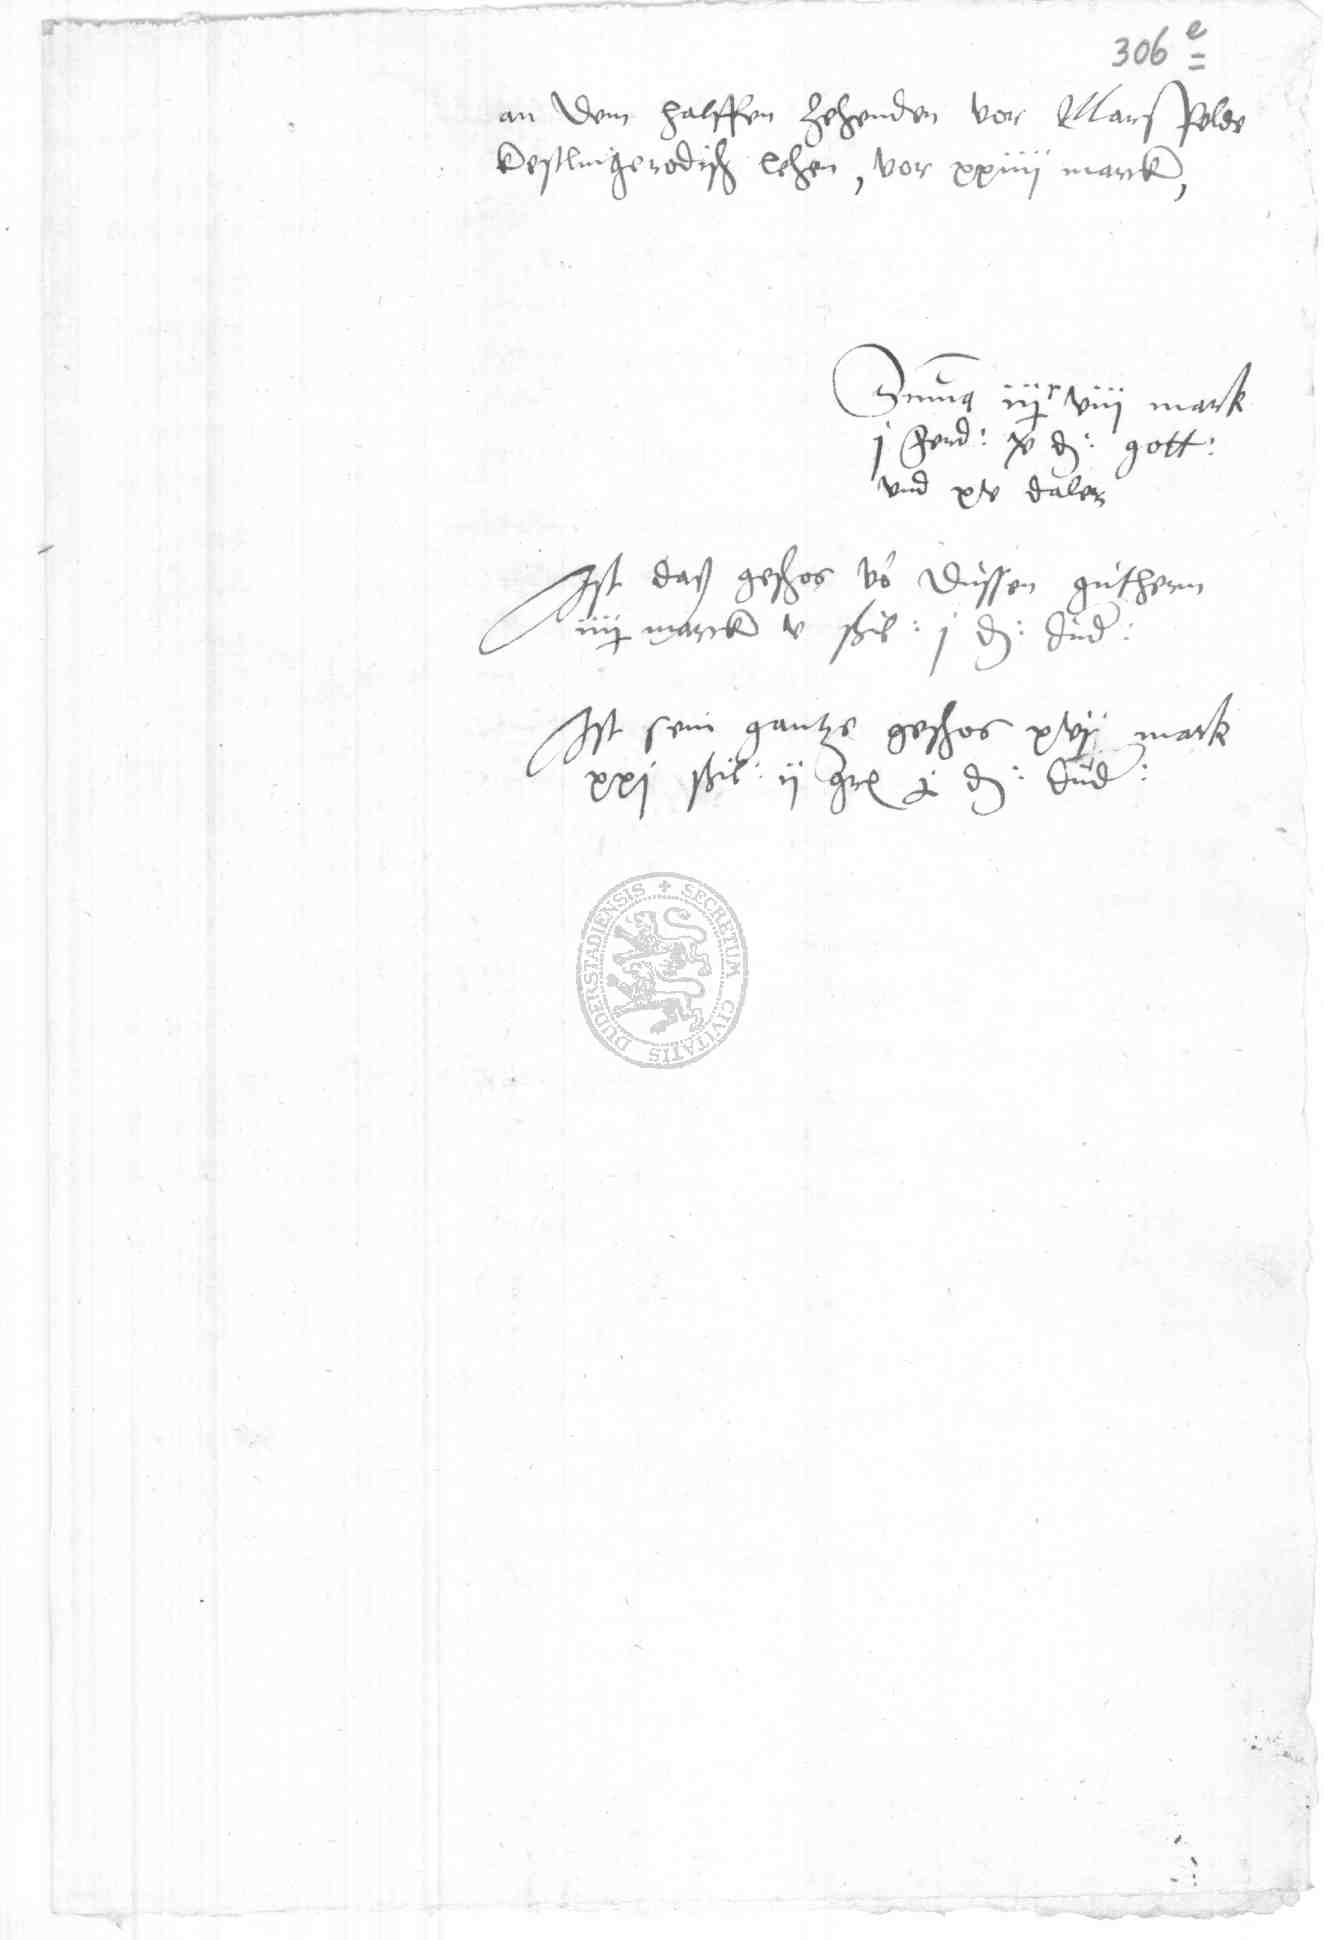 306 e
an dem halffen zehenden vor Marsfelde
Kestlingerodisch lehen, vor xxiiii marck,
Summa iiijc viii mark
j ferd: x d: gott:
vnd xv daler
Ist daß geschos vo dussen guthern
iiij marck v schil: j d: dud:
Ist sein gantze geschos xvij mark
xxj schil: ij d: dud:
SECRETUM CIVITATIS DUDERSTADIENSIS